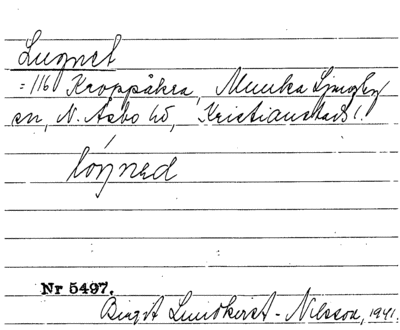 Lugnet
= 116 Kroppåkra, Munka Ljungby
sn, N. Åsbo hd, Kristianstads l.
lóyned
Nr 5497.
Birgit Lundkvist-Nilsson, 1941.